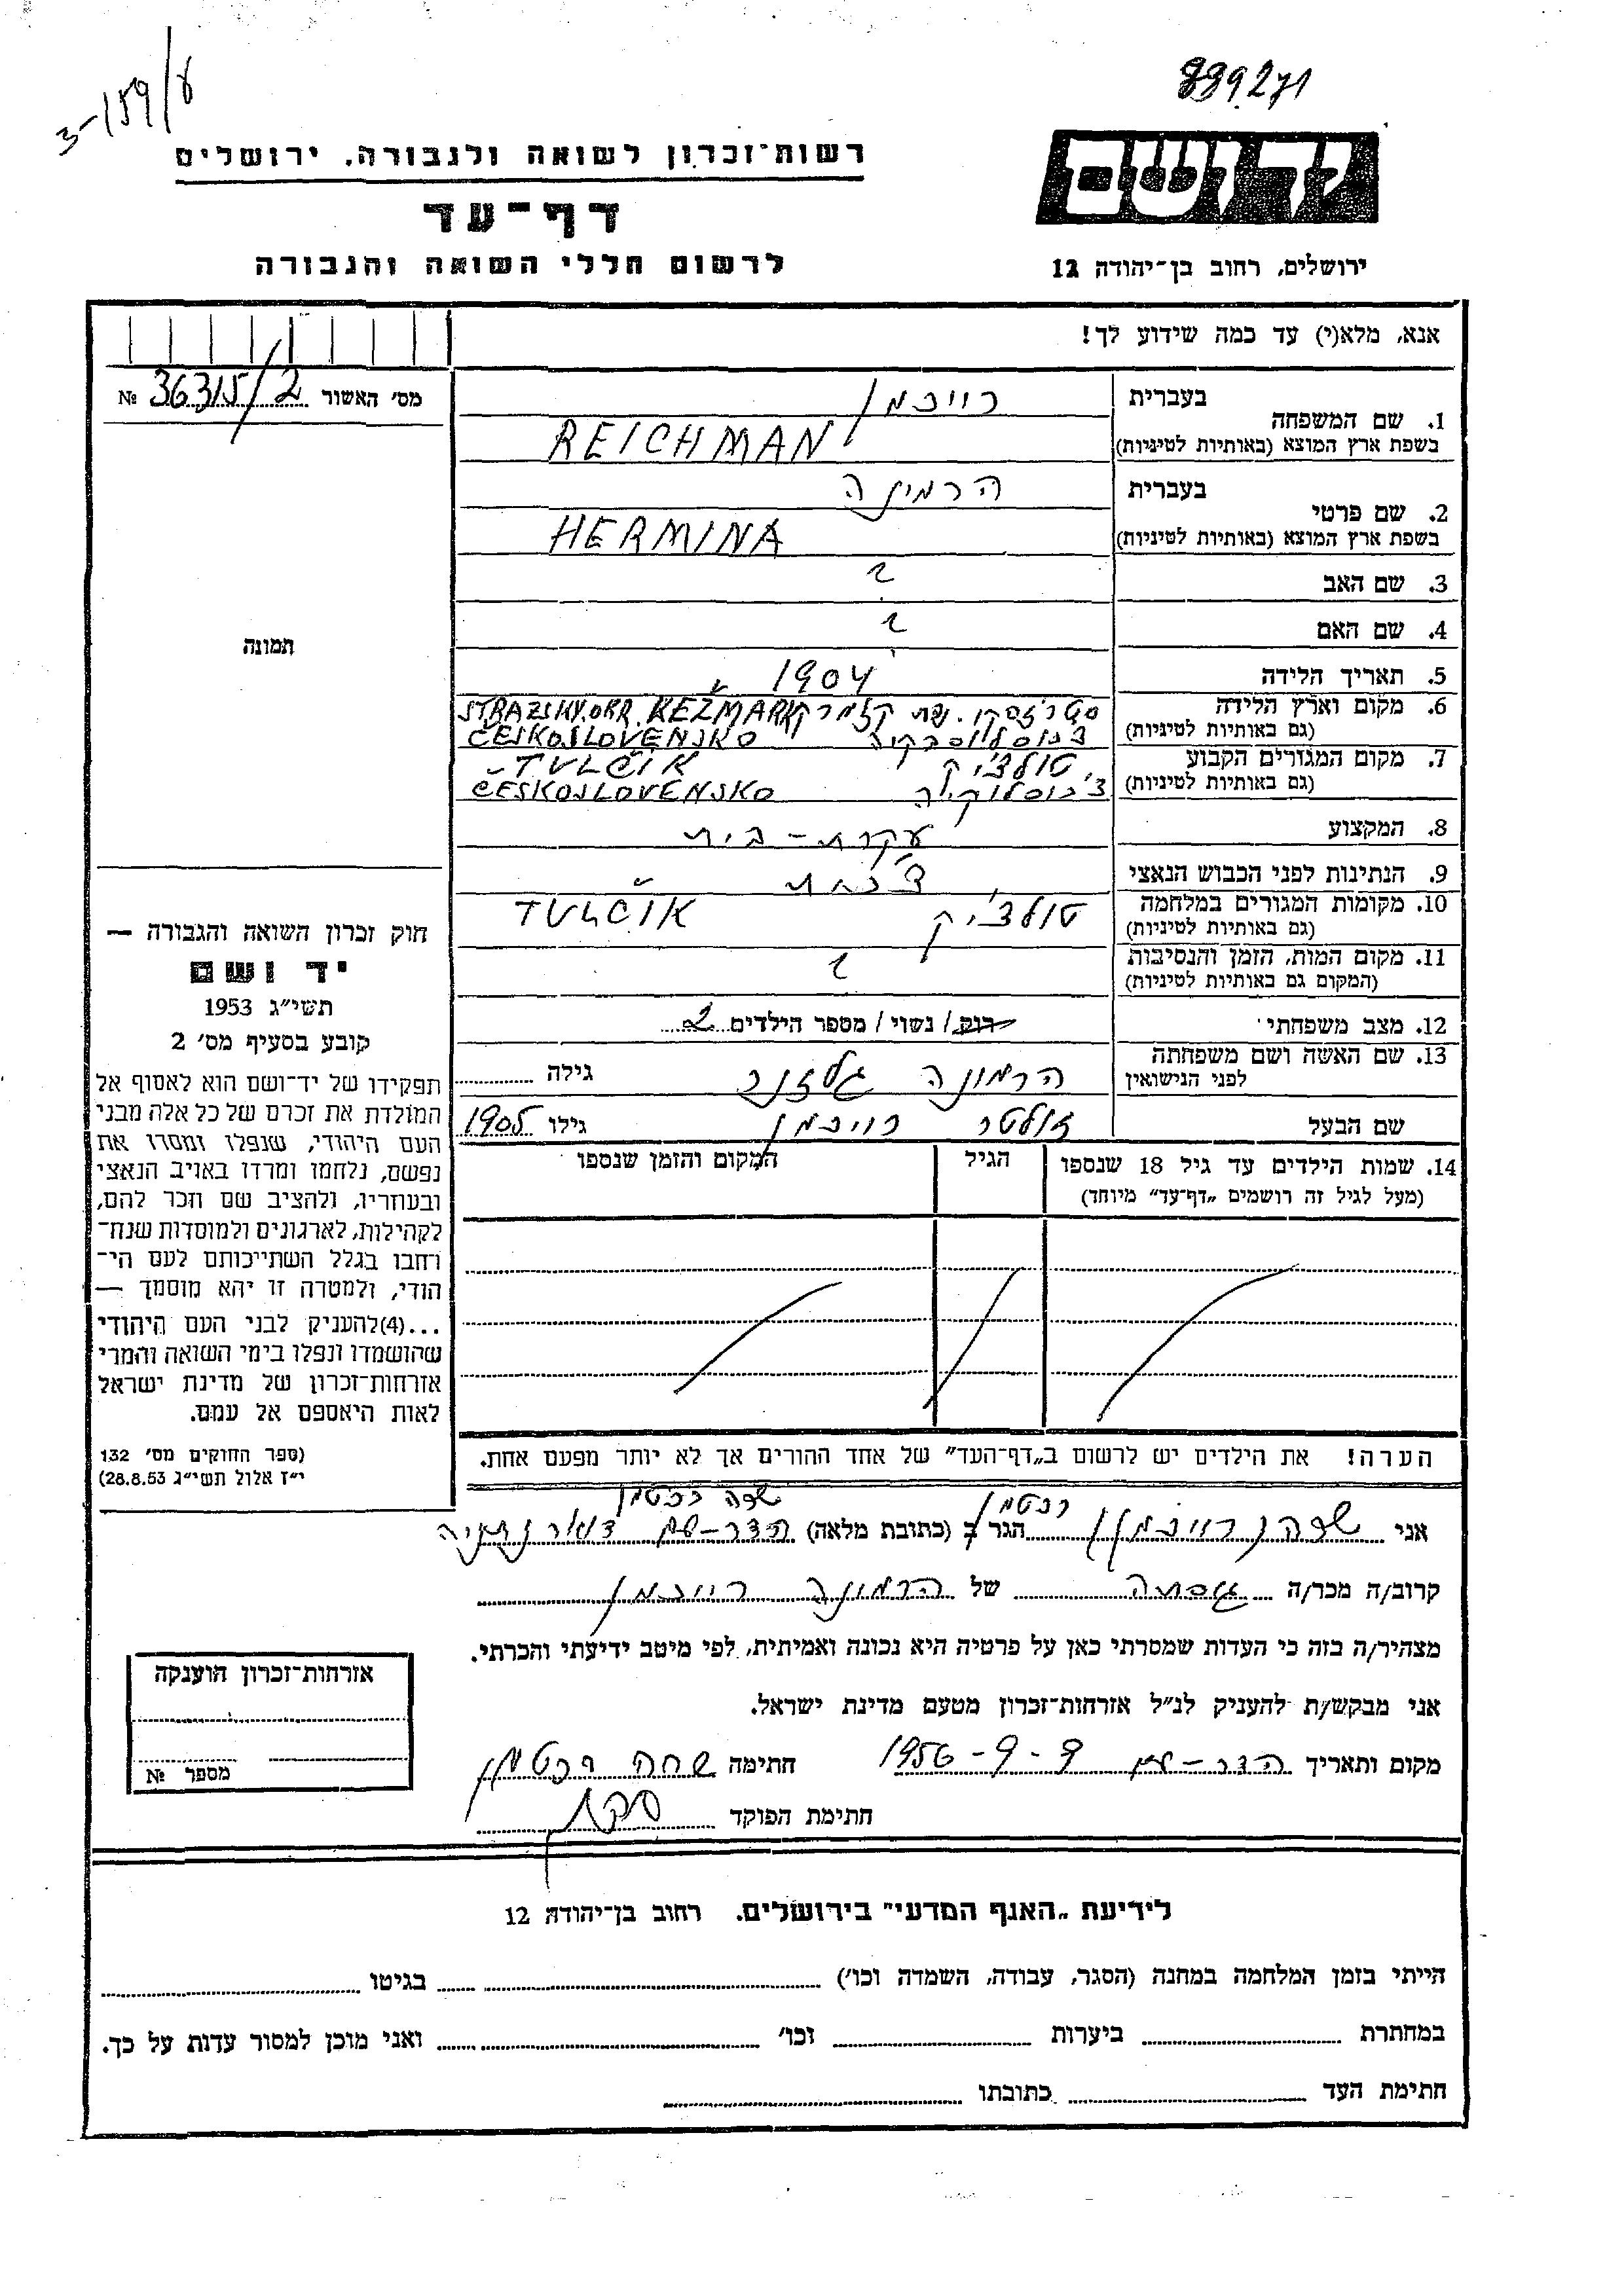 3-159/8
889271
רשות־זכרון לשואה ולגבורה, ירושלים
יד ושם
דף־עד
לרשום חללי השואה והגבורה
ירושלים, רחוב בן־יהודה 12
אנא, מלא(י) עד כמה שידוע לך!
מס׳ האשור 36315/2 №
1. שם המשפחה
בעברית רייכמן
בשפת ארץ המוצא (באותיות לטיניות) REICHMAN
2. שם פרטי
בעברית הרמינה
בשפת ארץ המוצא (באותיות לטיניות) HERMINA
3. שם האב ?
4. שם האם ?
5. תאריך הלידה 1904
6. מקום וארץ הלידה קזמרק STRAZSKY.OKR. KEŽMARK
(גם באותיות לטיניות) ČESKOSLOVENSKO
7. מקום המגורים הקבוע טולצ׳יק TULČIK
(גם באותיות לטיניות) ČESKOSLOVENSKO
8. המקצוע עקרת-בית
9. הנתינות לפני הכבוש הנאצי צ׳כית
10. מקומות המגורים במלחמה טולצ׳יק TULČIK
(גם באותיות לטיניות)
11. מקום המות, הזמן והנסיבות ?
(המקום גם באותיות לטיניות)
12. מצב משפחתי רווק / נשוי / מספר הילדים 2
13. שם האשה ושם משפחתה
לפני הנישואין הרמינה גילה
שם הבעל זולטר רייכמן גילו 1905
14. שמות הילדים עד גיל 18 שנספו הגיל המקום והזמן שנספו
(מעל לגיל זה רושמים „דף־עד״ מיוחד)
הערה! את הילדים יש לרשום ב„דף־העד״ של אחד ההורים אך לא יותר מפעם אחת.
תמונה
חוק זכרון השואה והגבורה —
יד ושם
תשי״ג 1953
קובע בסעיף מס׳ 2
תפקידו של יד־ושם הוא לאסוף אל
המולדת את זכרם של כל אלה מבני
העם היהודי, שנפלו ומסרו את
נפשם, נלחמו ומרדו באויב הנאצי
ובעוזריו, ולהציב שם וזכר להם,
לקהילות, לארגונים ולמוסדות שנח־
רחבו בגלל השתייכותם לעם הי־
הודי, ולמטרה זו יהא מוסמך —
...(4)להעניק לבני העם היהודי
שהושמדו ונפלו בימי השואה והמרי
אזרחות־זכרון של מדינת ישראל
לאות היאספם אל עמם.
(ספר החוקים מס׳ 132
י״ז אלול תשי״ג 28.8.53)
רכטמן
אני רייכמן הגר ב (כתובת מלאה) הדר-עם דואר נתניה
קרוב/ה מכר/ה גיסתה של הרמינה רייכמן
מצהיר/ה בזה כי העדות שמסרתי כאן על פרטיה היא נכונה ואמיתית, לפי מיטב ידיעתי והכרתי.
אני מבקש/ת להעניק לנ״ל אזרחות־זכרון מטעם מדינת ישראל.
מקום ותאריך הדר-עם 9-9-1956 חתימה רכטמן
חתימת הפוקד
אזרחות־זכרון הוענקה
מספר №
לידיעת „האגף המדעי״ בירושלים, רחוב בן־יהודה 12
הייתי בזמן המלחמה במחנה (הסגר, עבודה, השמדה וכו׳) בגיטו
במחתרת ביערות וכו׳ ואני מוכן למסור עדות על כך.
חתימת העד כתובתו